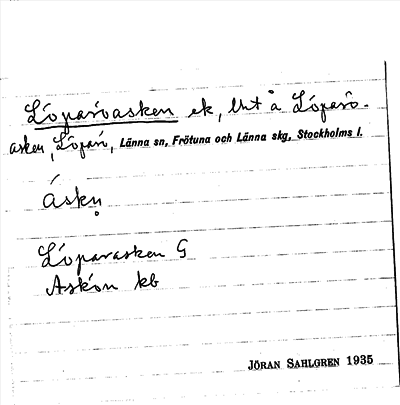 Löparöasken ek, utit å Löparö-
asken, Löparö, Länna sn, Frötuna och Länna skg, Stockholms l.
Áskn̥
Löparasken G
Askön kb
JÖRAN SAHLGREN 1935